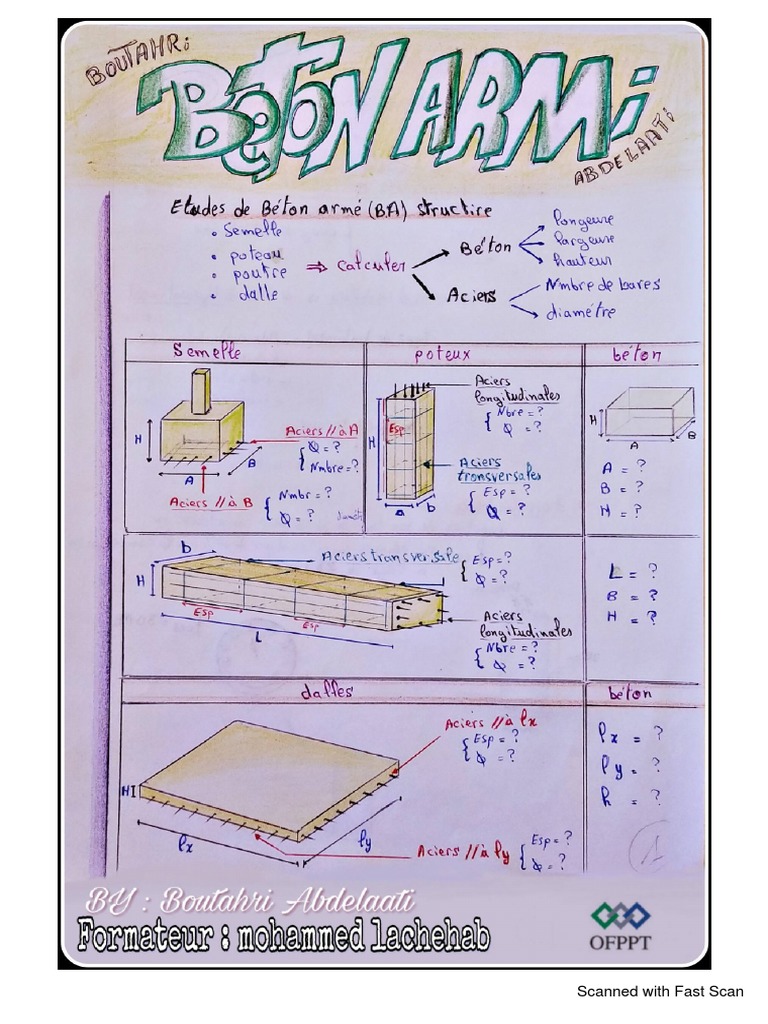 BOUTAHRI
BETON ARMi
ABDELAATI
Etudes de Béton armé (BA) structire
• Semelle
• poteau
• poutre
• dalle
⇒ Calculer
Béton
longeure
largeure
hauteur
Aciers
Nmbre de bares
diamétre
Semelle
poteux
béton
H
A
B
Aciers // à A
Ø = ?
Nmbre = ?
Aciers // à B
Nmbr = ?
Ø = ?
H
Esp
a
b
Aciers
longitudinales
Nbre = ?
Ø = ?
Aciers
transversales
Esp = ?
Ø = ?
H
A
B
A = ?
B = ?
H = ?
b
H
Esp
Esp
L
Aciers transversale
Esp = ?
Ø = ?
Aciers
longitudinales
Nbre = ?
Ø = ?
L = ?
B = ?
H = ?
dalles
béton
H
lx
ly
Aciers // à lx
Esp = ?
Ø = ?
Aciers // à ly
Esp = ?
Ø = ?
lx = ?
ly = ?
h = ?
BY : Boutahri Abdelaati
Formateur : mohammed lachehab
OFPPT
Scanned with Fast Scan